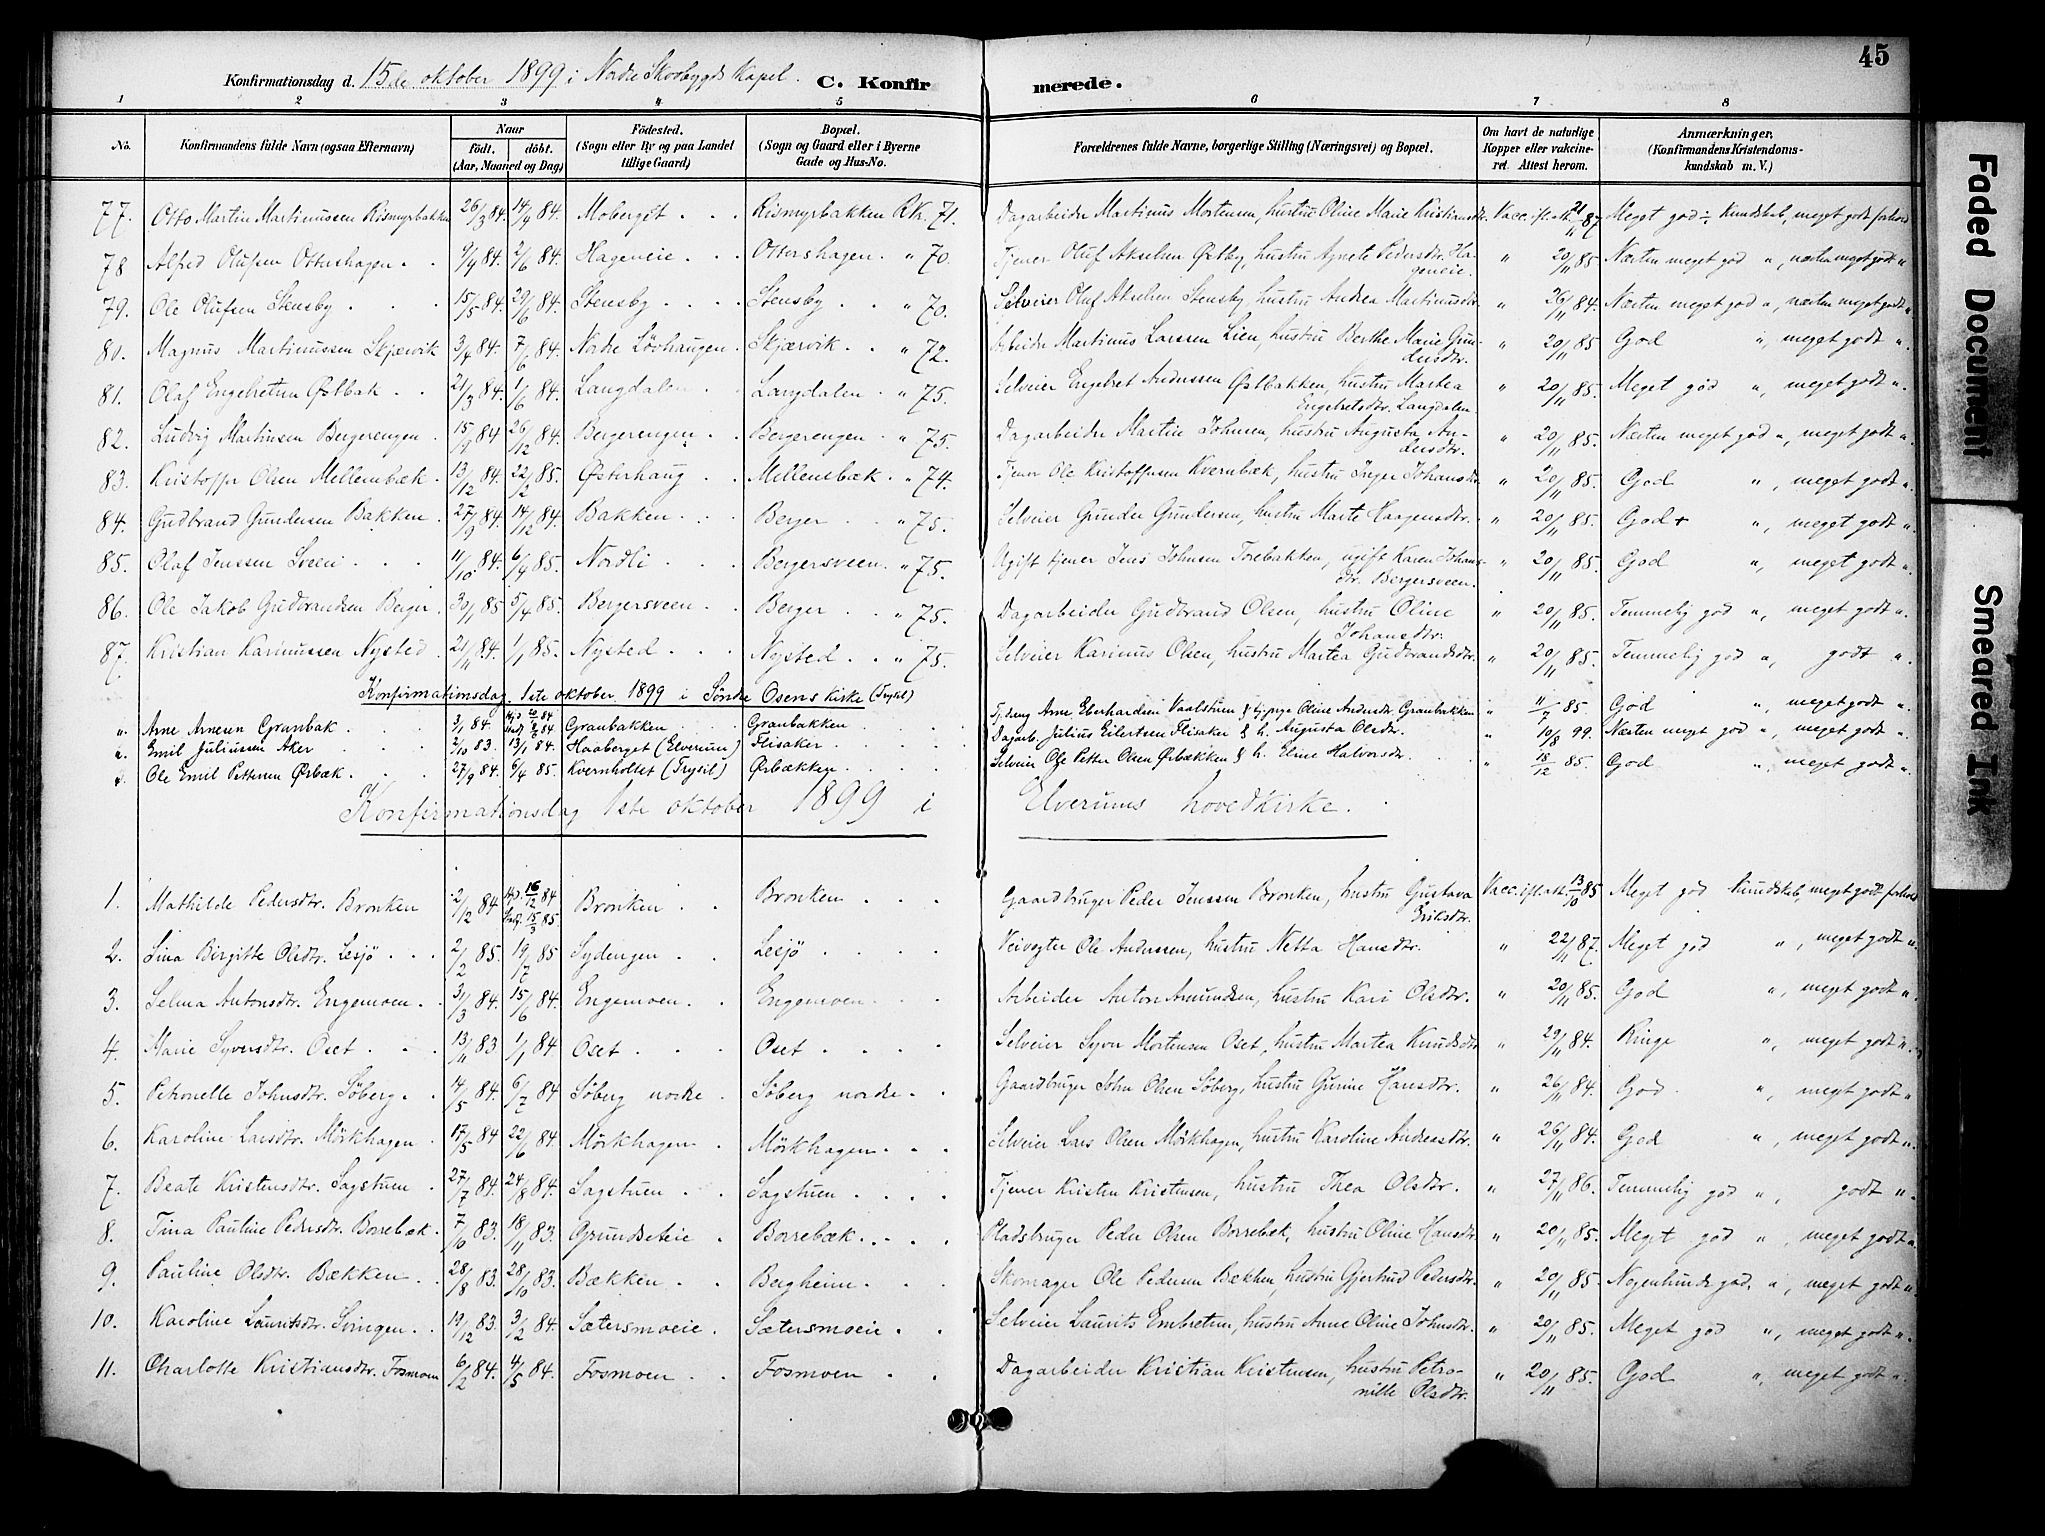 45
Konfirmationsdag d. 15de oktober 1899 i Nordre Skovbygds Kapel. C. Konfirmerede.
1 2 3 4 5 6 7 8
No. Konfirmandens fulde Navn (ogsaa Efternavn) Naar født. døbt. (Aar, Maaned og Dag) Fødested. (Sogn eller By og paa Landet tillige Gaard) Bopæl. (Sogn og Gaard eller i Byerne Gade og Hus-No. Forældrenes fulde Navne, borgerlige Stilling (Næringsvei) og Bopæl. Om havt de naturlige Kopper eller vakcineret. Attest herom. Anmærkninger, (Konfirmandens Kristendomskundskab m. V.)
77. Otto Martin Martinussen Rismyrbakken 26/3 84. 14/4 84. Moberget Rismyrbakken Rk. 71. Dagarbeider Martinus Mortensen, hustru Oline Marie Kristiansdtr. Vacc. ifl. att. 21/11 87 Meget god ÷ Kundskab, meget godt forhold
78 Alfred Olufsen Ottershagen 9/4 84. 2/6 84. Hageneie Ottershagen " 70. Tjener Oluf Akselsen Østby, hustru Agnete Pedersdtr. Hageneie. " 20/11 85 Næsten meget god ", næsten meget godt "
79. Ole Olufsen Stensby 15/5 84. 29/6 84. Stensby Stensby " 70. Selveier Oluf Akselsen Stensby, hustru Andrea Martinusdtr. " 26/11 84. Næsten meget god ", næsten meget godt "
80. Magnus Martinussen Skjærvik 3/4 84. 7/6 84. Nordre Løvhaugen Skjærvik " 72. Arbeider Martinus Larssen Lien, hustru Berthe Marie Gundersdtr. " 20/11 85 God ", meget godt ".
81. Olaf Engebretsen Østbak 21/3 84. 1/6 84. Langdalen Langdalen " 75. Selveier Engebret Andersen Østbakken, hustru Martea Engebretsdtr. Langdalen " 20/11 85. Meget god ", meget godt ".
82. Ludvig Martinsen Bergerengen 15/9 84 26/12 84. Bergerengen Bergerengen " 75. Dagarbeider Martin Johnsen, hustru Augusta Andersdtr. " 20/11 85. Næsten meget god ", meget godt ".
83. Kristoffer Olsen Mellembæk 13/12 84. 22/2 85. Østerhaug Mellembæk " 74. Tjener Ole Kristoffersen Kvernbæk, hustru Inger Johansdtr. " 20/11 85. God ", meget godt ".
84. Gudbrand Gundersen Bakken 27/9 84. 14/12 84. Bakken Berger " 75. Selveier Gunder Gundersen, hustru Marte Haagensdtr. " 20/11 85. God + ", meget godt ".
85. Olaf Jenssen Sveen 11/10 84. 6/4 85. Nordli Bergersveen " 75. Ugift tjener Jens Johnsen Torebakken, ugift Karen Johansdtr. Bergersveen. " 20/11 85. God ", meget godt ".
86. Ole Jakob Gudbrandsen Berger 30/1 85 5/4 85. Bergersveen Berger " 75. Dagarbeider Gudbrand Olsen, hustru Oline Johansdtr. " 20/11 85. Temmelig god ", meget godt ".
87. Kristian Karinussen Nysted 21/11 84. 1/1 85. Nysted Nysted " 75. Selveier Karinus Olsen, hustru Martea Gudbrandsdtr. " 20/11 85. Temmelig god ", godt ".
Konfirmationsdag. 1ste oktober 1899 i Søndre Osens kirke (Trysil)
" Arne Arnesen Granbak 3/1 84. Granbakken Granbakken Arne Eberhardsen Oline Andersdtr. Granbakken " 11/7 85 God ", meget godt ".
" Emil Juliussen Aker 2/10 83. 13/1 84. Haaberget (Elverum) Flisaker Dagarb. Julius Eilertsen Flisaker & h. Augusta Olsdtr. " 10/8 99. Næsten meget god ", meget godt ".
" Ole Emil Pettersen Ørbæk 27/9 84. 6/4 85. Kvernholtet (Trysil) Ørbækken Selveier Ole Petter Olsen Ørbækken & h. Eline Halvorsdtr. " 18/12 85. God ", meget godt ".
Konfirmationsdag 1ste oktober 1899 i Elverums hovedkirke.
1. Mathilde Pedersdtr. Bronken 2/2 84 Hjd. 16/12 84 15/3 85. Bronken Bronken Gaardbruger Peder Jenssen Bronken, hustru Gustava Eriksdtr. Vacc. ifl. att. 13/10 85 Meget god Kundskab, meget godt forhold
2. Lina Birgitte Olsdtr. Lesjø 2/2 85. 19/7 85 Sydengen Lesjø Veivogter Ole Andersen, hustru Netta Hansdtr. " 22/11 87. Meget god ", meget godt ".
3. Selma Antonsdtr. Engemoen 31/3 84. 15/6 84. Engemoen Engemoen Arbeider Anton Amundsen, hustru Kari Olsdtr. " 20/11 85. God ", meget godt ".
4. Marie Syversdtr. Oset 13/11 83 1/1 84 Oset Oset Selveier Syver Mortensen Oset, hustru Martea Knudsdtr " 29/11 84. Ringe ", meget godt ".
5. Petronelle Johnsdtr. Søberg 14/5 84. 6/7 84 Søberg nordre Søberg nordre Gaardbruger John Olsen Søberg, hustru Gunine Hansdtr. " 26/11 84. God ", meget godt "
6. Karoline Larsdtr. Mörkhagen 17/5 84 22/6 84 Mörkhagen Mörkhagen Selveier Lars Olsen Mörkhagen, hustru Karoline Andreasdtr. " 26/11 84. God ", meget godt ".
7. Beate Kristensdtr. Sagstuen 27/7 84. 24/8 84. Sagstuen Sagstuen Tjener Kristen Kristensen, hustru Thea Olsdtr. " 27/11 86. Temmelig god ", godt ".
8. Tina Pauline Pedersdtr. Borrebæk 7/10 83. 18/11 83. Grundseteie Borrebæk Pladsbruger Peder Olsen Borrebæk, hustru Oline Hansdtr. " 20/11 85. Meget god ", meget godt ".
9. Pauline Olsdtr. Bækken 28/8 83. 28/10 83. Bækken Bergheim Skomager Ole Pedersen Bækken, hustru Gjertrud Pedersdtr. " 20/11 85. Nogenlunde god ", meget godt ".
10. Karoline Lauritsdtr. Svingen 19/12 83. 3/2 84. Sætersmoeie Sætersmoeie Selveier Laurits Embretsen, hustru Anne Oline Johnsdtr. " 20/11 85. Meget god ", meget godt ".
11. Charlotte Kristiansdtr. Fosmoen 6/2 84. 4/5 84. Fosmoen Fosmoen Dagarbeider Kristian Kristensen, hustru Petronille Olsdtr. " 20/11 85. God ", meget godt ".
Faded Document
Smeared Ink